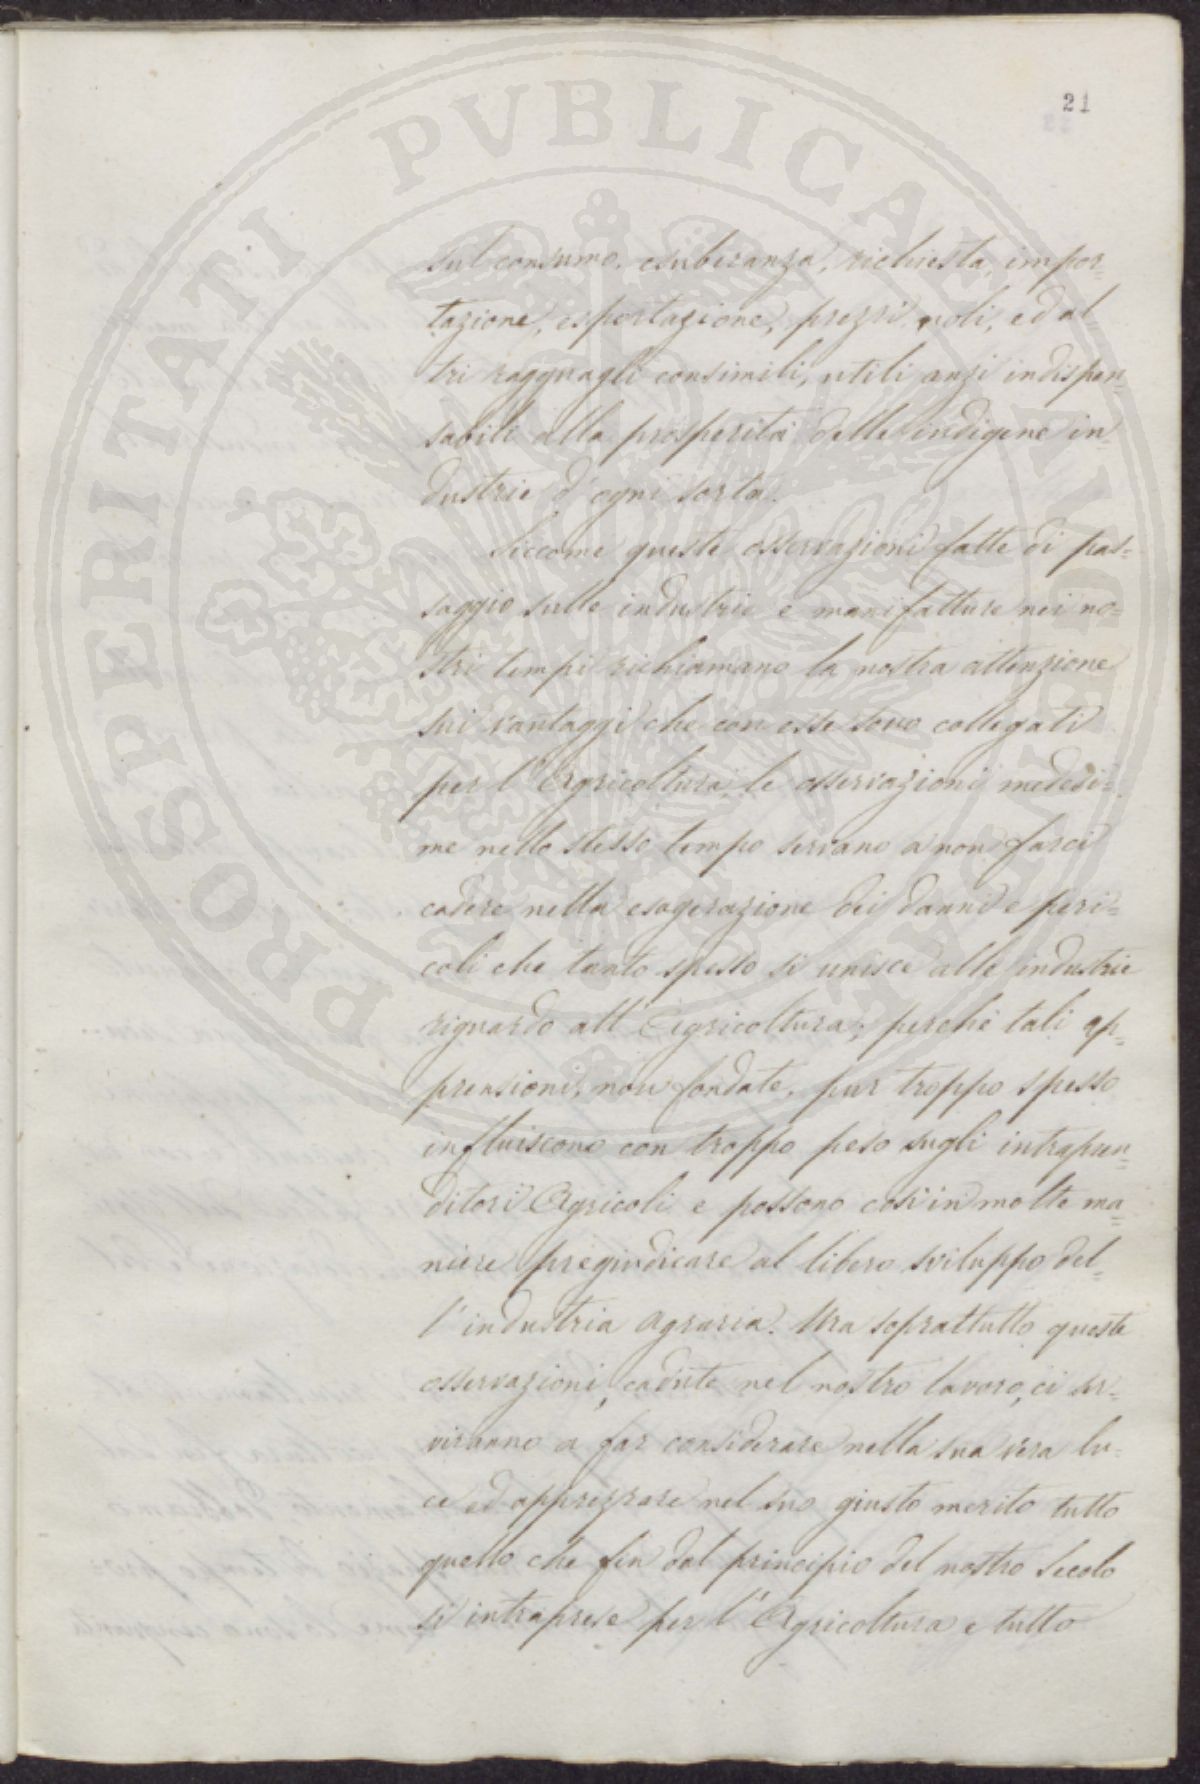 21
PROSPERITATI PVBLICAE AVGENDAE
sul consumo, esuberanza, richiesta, impor=
tazione, esportazione, prezzi, noli, ed al=
tri ragguagli consimili, utili anzi indispen=
sabili alla prosperità delle indigene in=
dustrie d'ogni sorta.
Siccome queste osservazioni fatte di pas=
saggio sulle industrie e manifatture nei no=
stri tempi richiamano la nostra attenzione
sui vantaggi che con esse sono collegati
per l'Agricoltura, le osservazioni medesi=
me nello stesso tempo servano a non farci
cadere nella esagerazione dei danni e peri=
coli che tanto spesso si unisce alle industrie
riguardo all'Agricoltura; perchè tali ap=
prensioni, non fondate, pur troppo spesso
influiscono con troppo peso sugli intrapren=
ditori Agricoli e possono così in molte ma=
niere pregiudicare al libero sviluppo del=
l'industria agraria. Ma soprattutto queste
osservazioni, cadute nel nostro lavoro, ci ser=
viranno a far considerare nella sua vera lu=
ce ed apprezzare nel suo giusto merito tutto
quello che fin dal principio del nostro secolo
si intraprese per l'Agricoltura e tutto